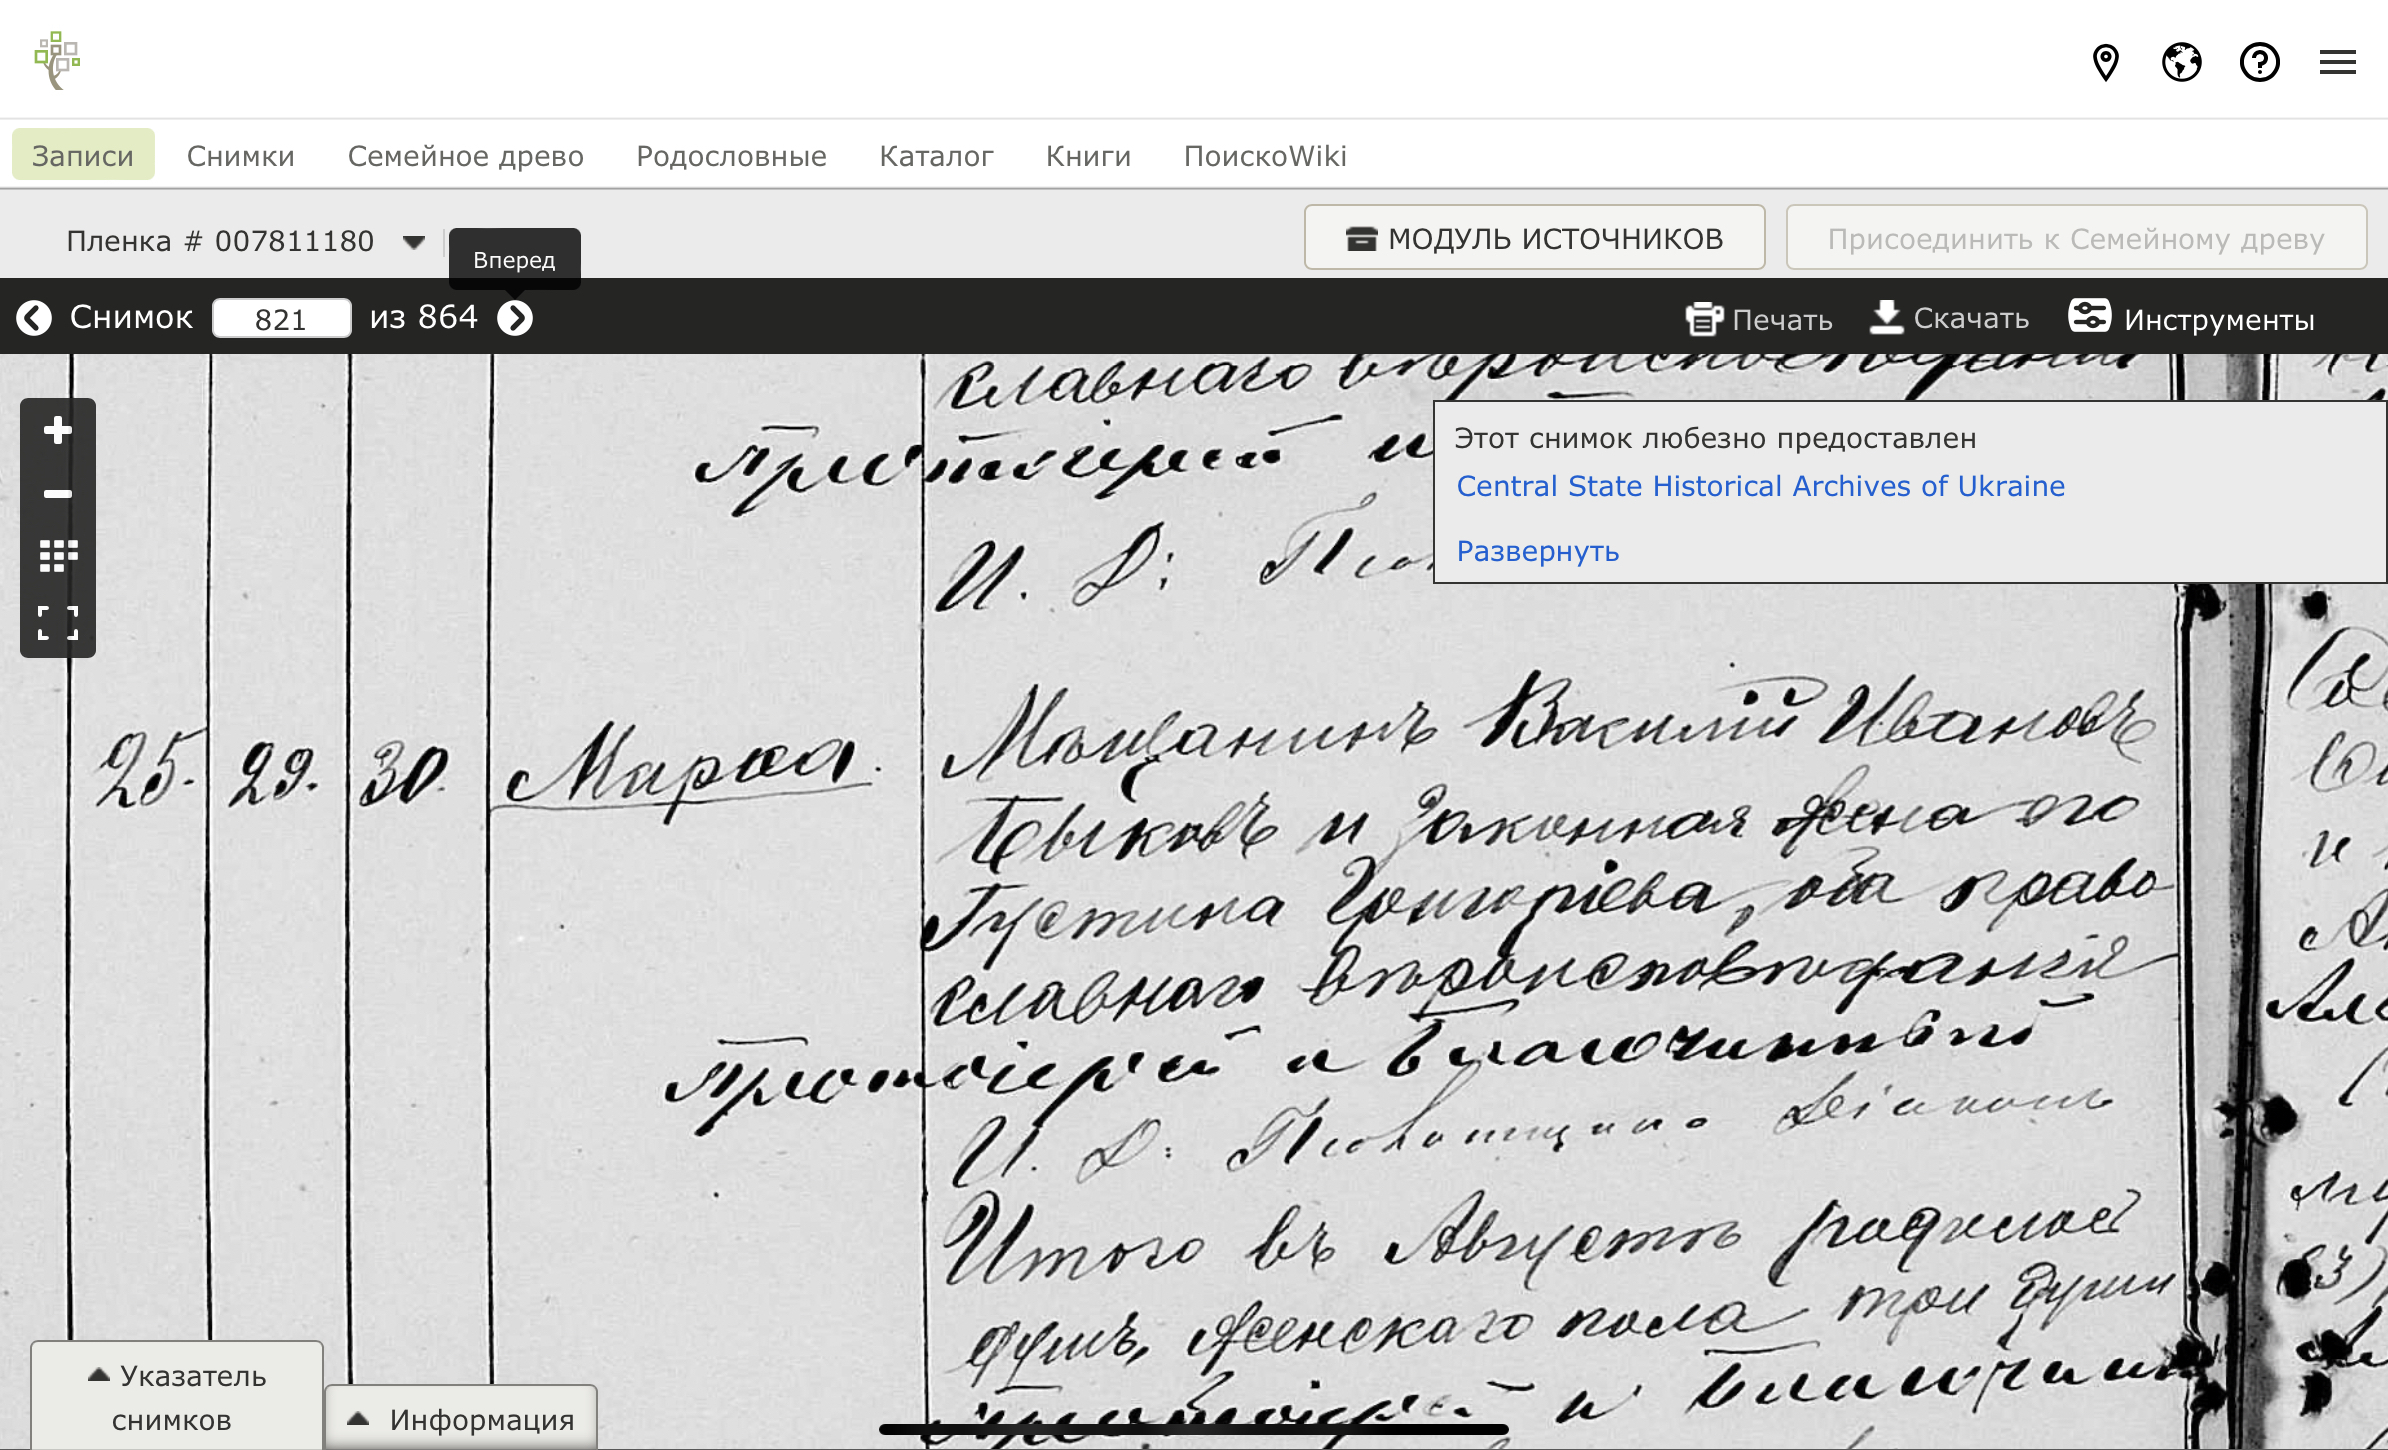 Записи Снимки Семейное древо Родословные Каталог Книги ПоискоWiki
Пленка # 007811180
Вперед
МОДУЛЬ ИСТОЧНИКОВ
Присоединить к Семейному древу
Снимок 821 из 864
Печать Скачать Инструменты
славнаго вѣроисповѣданія
Протоіерей и
И. Д:
Этот снимок любезно предоставлен
Central State Historical Archives of Ukraine
Развернуть
25. 29. 30. Марѳа.
Мѣщанинъ Василій Ивановъ
Быковъ и законная жена его
Густина Григоріева, оба право
славнаго вѣроисповѣданія
Протоіерей и Благочинный
И. Д: Псаломщика Діаконъ
Итого въ Августѣ родилось
душъ, женскаго пола три души
Протоіерей и Благочин
Указатель
снимков
Информация